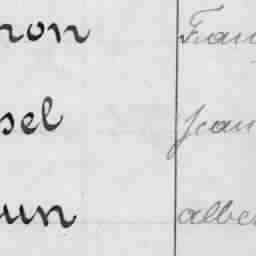 non Fran
sel Jean
un albe